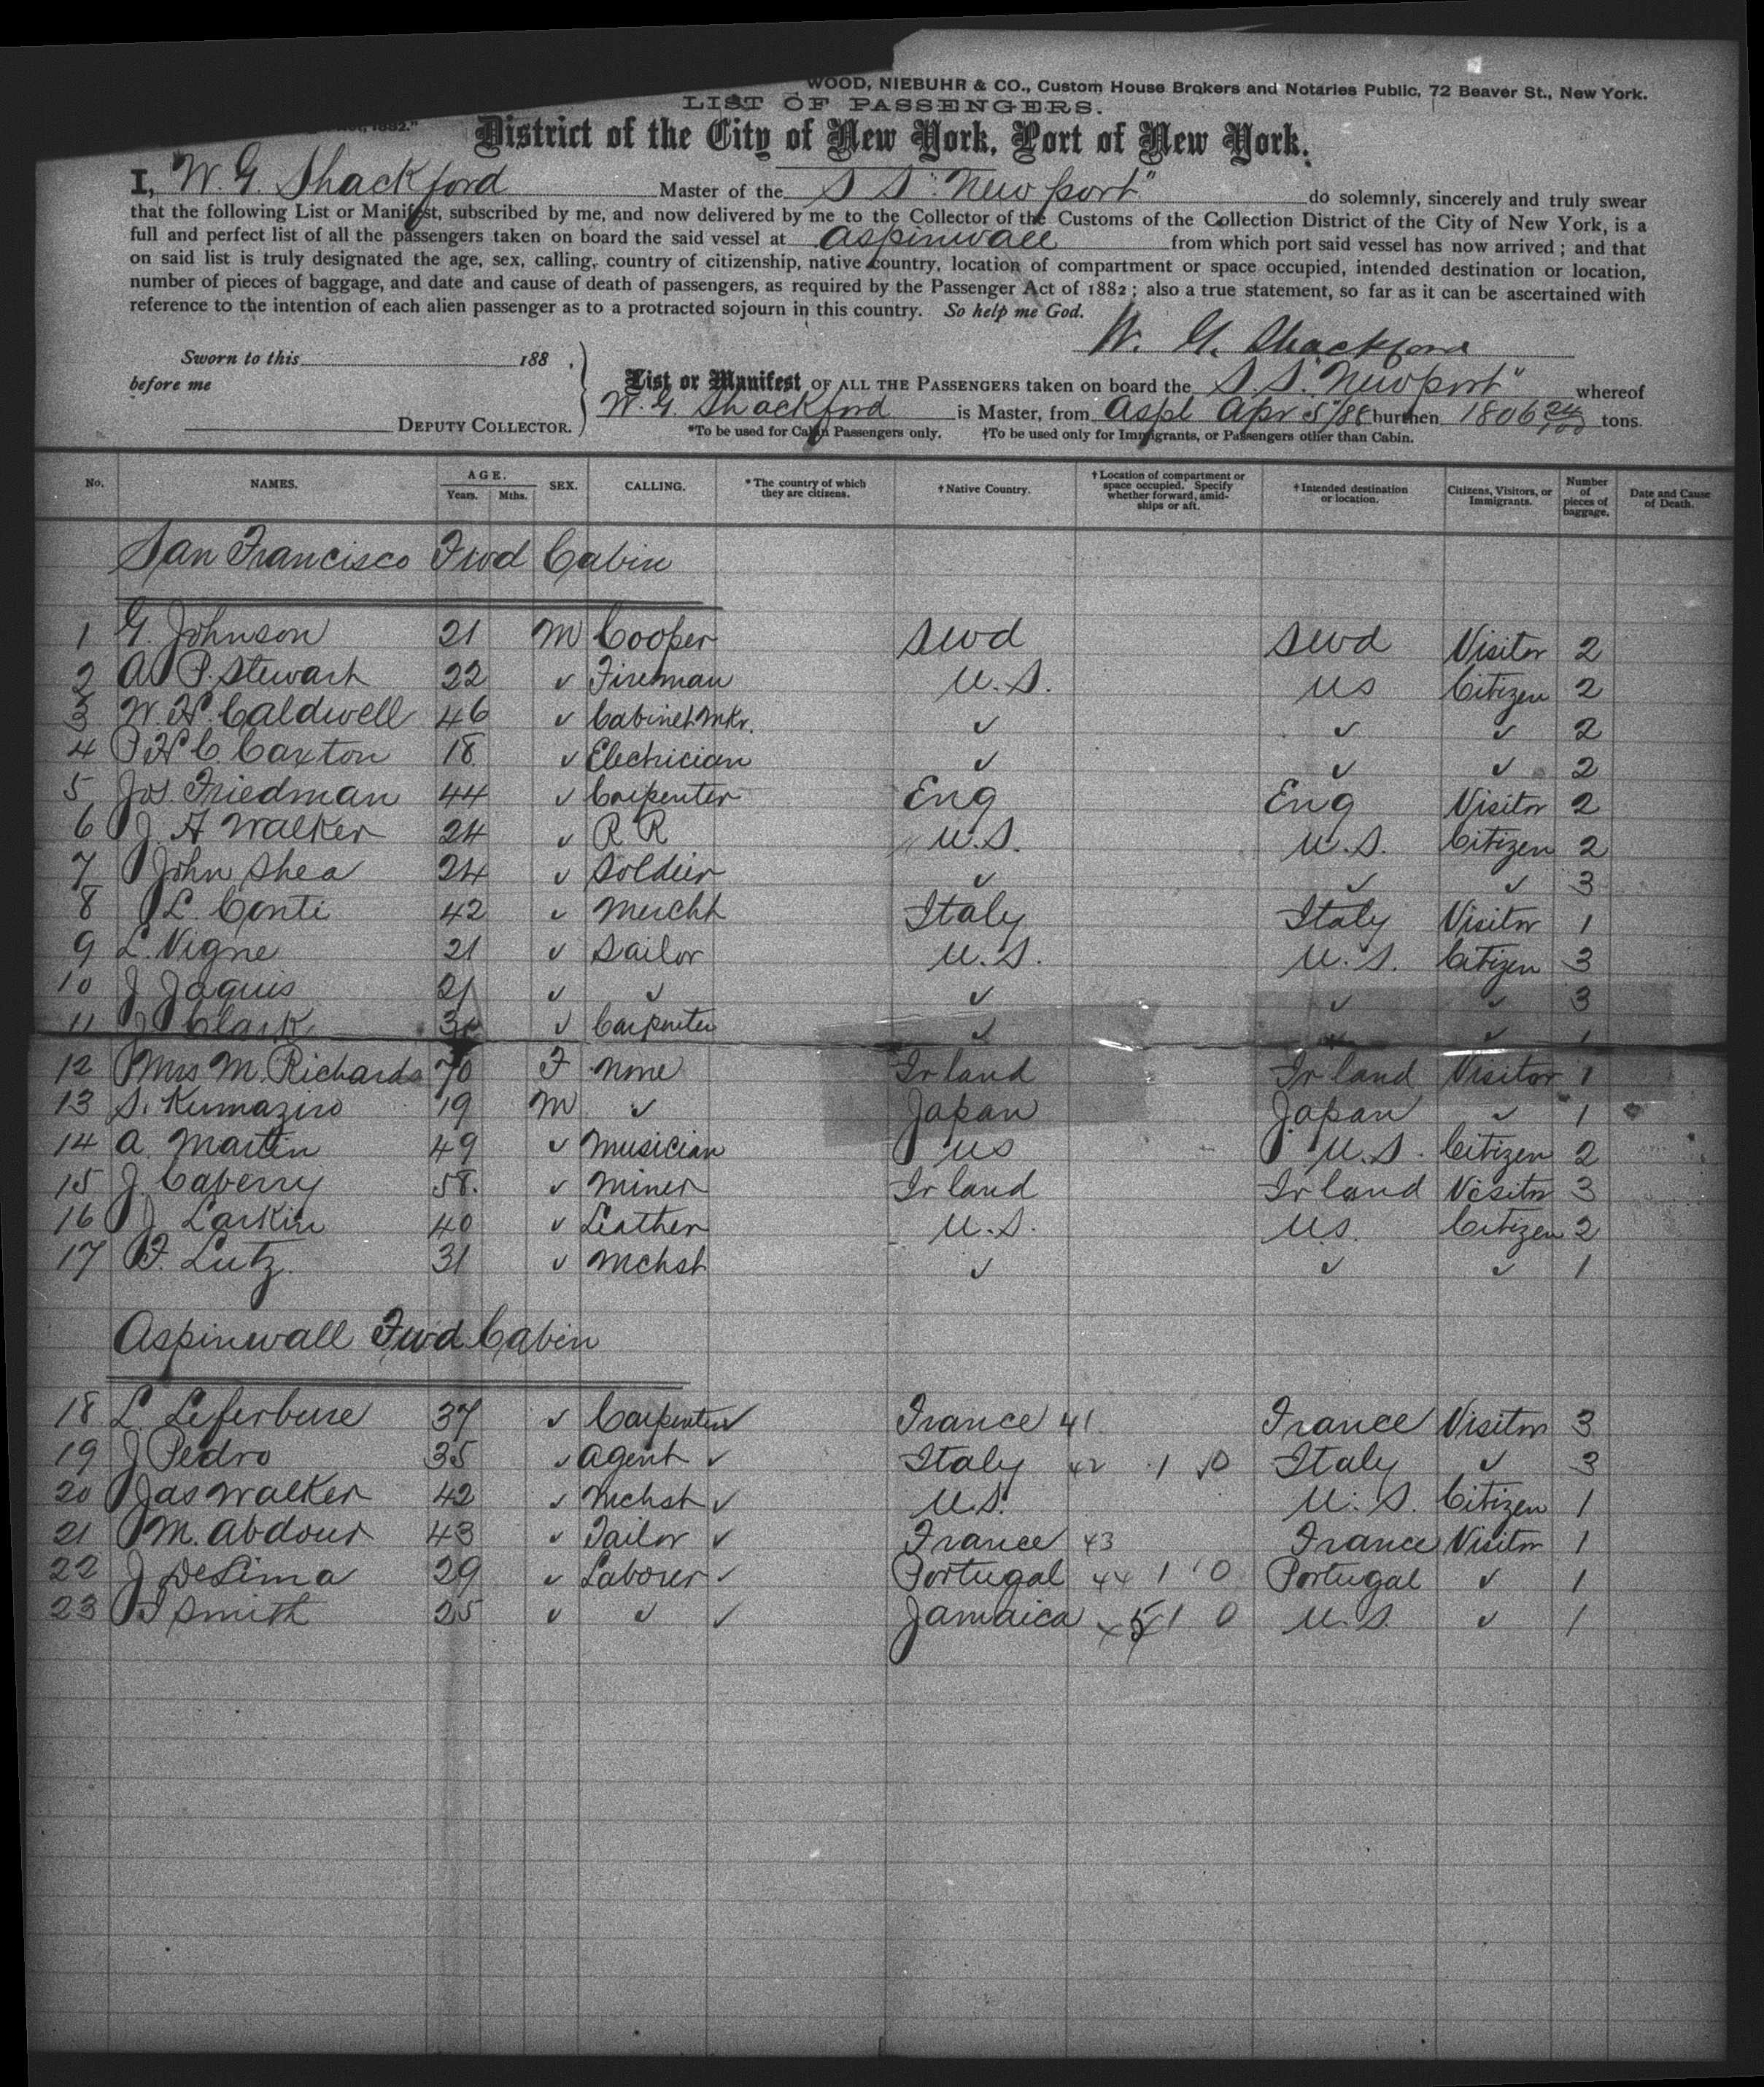 WOOD, NIEBUHR & CO., Custom House Brokers and Notaries Public, 72 Beaver St., New York.
1882."
LIST OF PASSENGERS.
District of the City of New York, Port of New York.
I, W. G. Shackford Master of the S S "Newport" do solemnly, sincerely and truly swear
that the following List or Manifest, subscribed by me, and now delivered by me to the Collector of the Customs of the Collection District of the City of New York, is a
full and perfect list of all the passengers taken on board the said vessel at Aspinwall from which port said vessel has now arrived; and that
on said list is truly designated the age, sex, calling, country of citizenship, native country, location of compartment or space occupied, intended destination or location,
number of pieces of baggage, and date and cause of death of passengers, as required by the Passenger Act of 1882; also a true statement, so far as it can be ascertained with
reference to the intention of each alien passenger as to a protracted sojourn in this country. So help me God.
W. G. Shackford
Sworn to this 188 .
before me
DEPUTY COLLECTOR.
List or Manifest OF ALL THE PASSENGERS taken on board the S. S. "Newport" whereof
W. G. Shackford is Master, from Aspl Apr 5/88 burthen 1806 24/100 tons.
*To be used for Cabin Passengers only. †To be used only for Immigrants, or Passengers other than Cabin.
No. NAMES. AGE. Years. Mths. SEX. CALLING. *The country of which they are citizens. †Native Country. †Location of compartment or space occupied. Specify whether forward, amidships or aft. †Intended destination or location. Citizens, Visitors, or Immigrants. Number of pieces of baggage. Date and Cause of Death.
San Francisco Fwd Cabin
1 G. Johnson 21 M Cooper Swd Swd Visitor 2
2 A. P. Stewart 22 ✓ Fireman U.S. US Citizen 2
3 W. H. Caldwell 46 ✓ Cabinet Mkr. ✓ ✓ ✓ 2
4 P H C Caxton 18 ✓ Electrician ✓ ✓ ✓ 2
5 Jos. Friedman 44 ✓ Carpenter Eng Eng Visitor 2
6 J. A Walker 24 ✓ R R U.S. U.S. Citizen 2
7 John Shea 24 ✓ Soldier ✓ ✓ ✓ 3
8 L. Conti 42 ✓ Mercht Italy Italy Visitor 1
9 L. Vigne 21 ✓ Sailor U.S. U.S. Citizen 3
10 J Jaquis 21 ✓ ✓ ✓ ✓ ✓ 3
11 J Clark ✓ Carpenter ✓ ✓ ✓ 1
12 Mrs M. Richards 70 F none Irland Irland Visitor 1
13 S. Kumaziro 19 M ✓ Japan Japan ✓ 1
14 A. Martin 49 ✓ Musician US U.S. Citizen 2
15 J. Caberry 58. ✓ Miner Irland Irland Visitor 3
16 J. Larkin 40 ✓ Leather U.S. US. Citizen 2
17 F. Lutz. 31 ✓ Mchst ✓ ✓ ✓ 1
Aspinwall Fwd Cabin
18 L. Leferbure 37 ✓ Carpenter ✓ France 41 France Visitor 3
19 J Pedro 35 ✓ Agent ✓ Italy 42 1 0 Italy ✓ 3
20 Jas Walker 42 ✓ Mchst ✓ U.S. U.S. Citizen 1
21 M. Abdour 43 ✓ Tailor ✓ France 43 France Visitor 1
22 J DeLima 29 ✓ Laborer ✓ Portugal 44 1 0 Portugal ✓ 1
23 Smith 25 ✓ ✓ ✓ Jamaica 45 1 0 U.S. ✓ 1